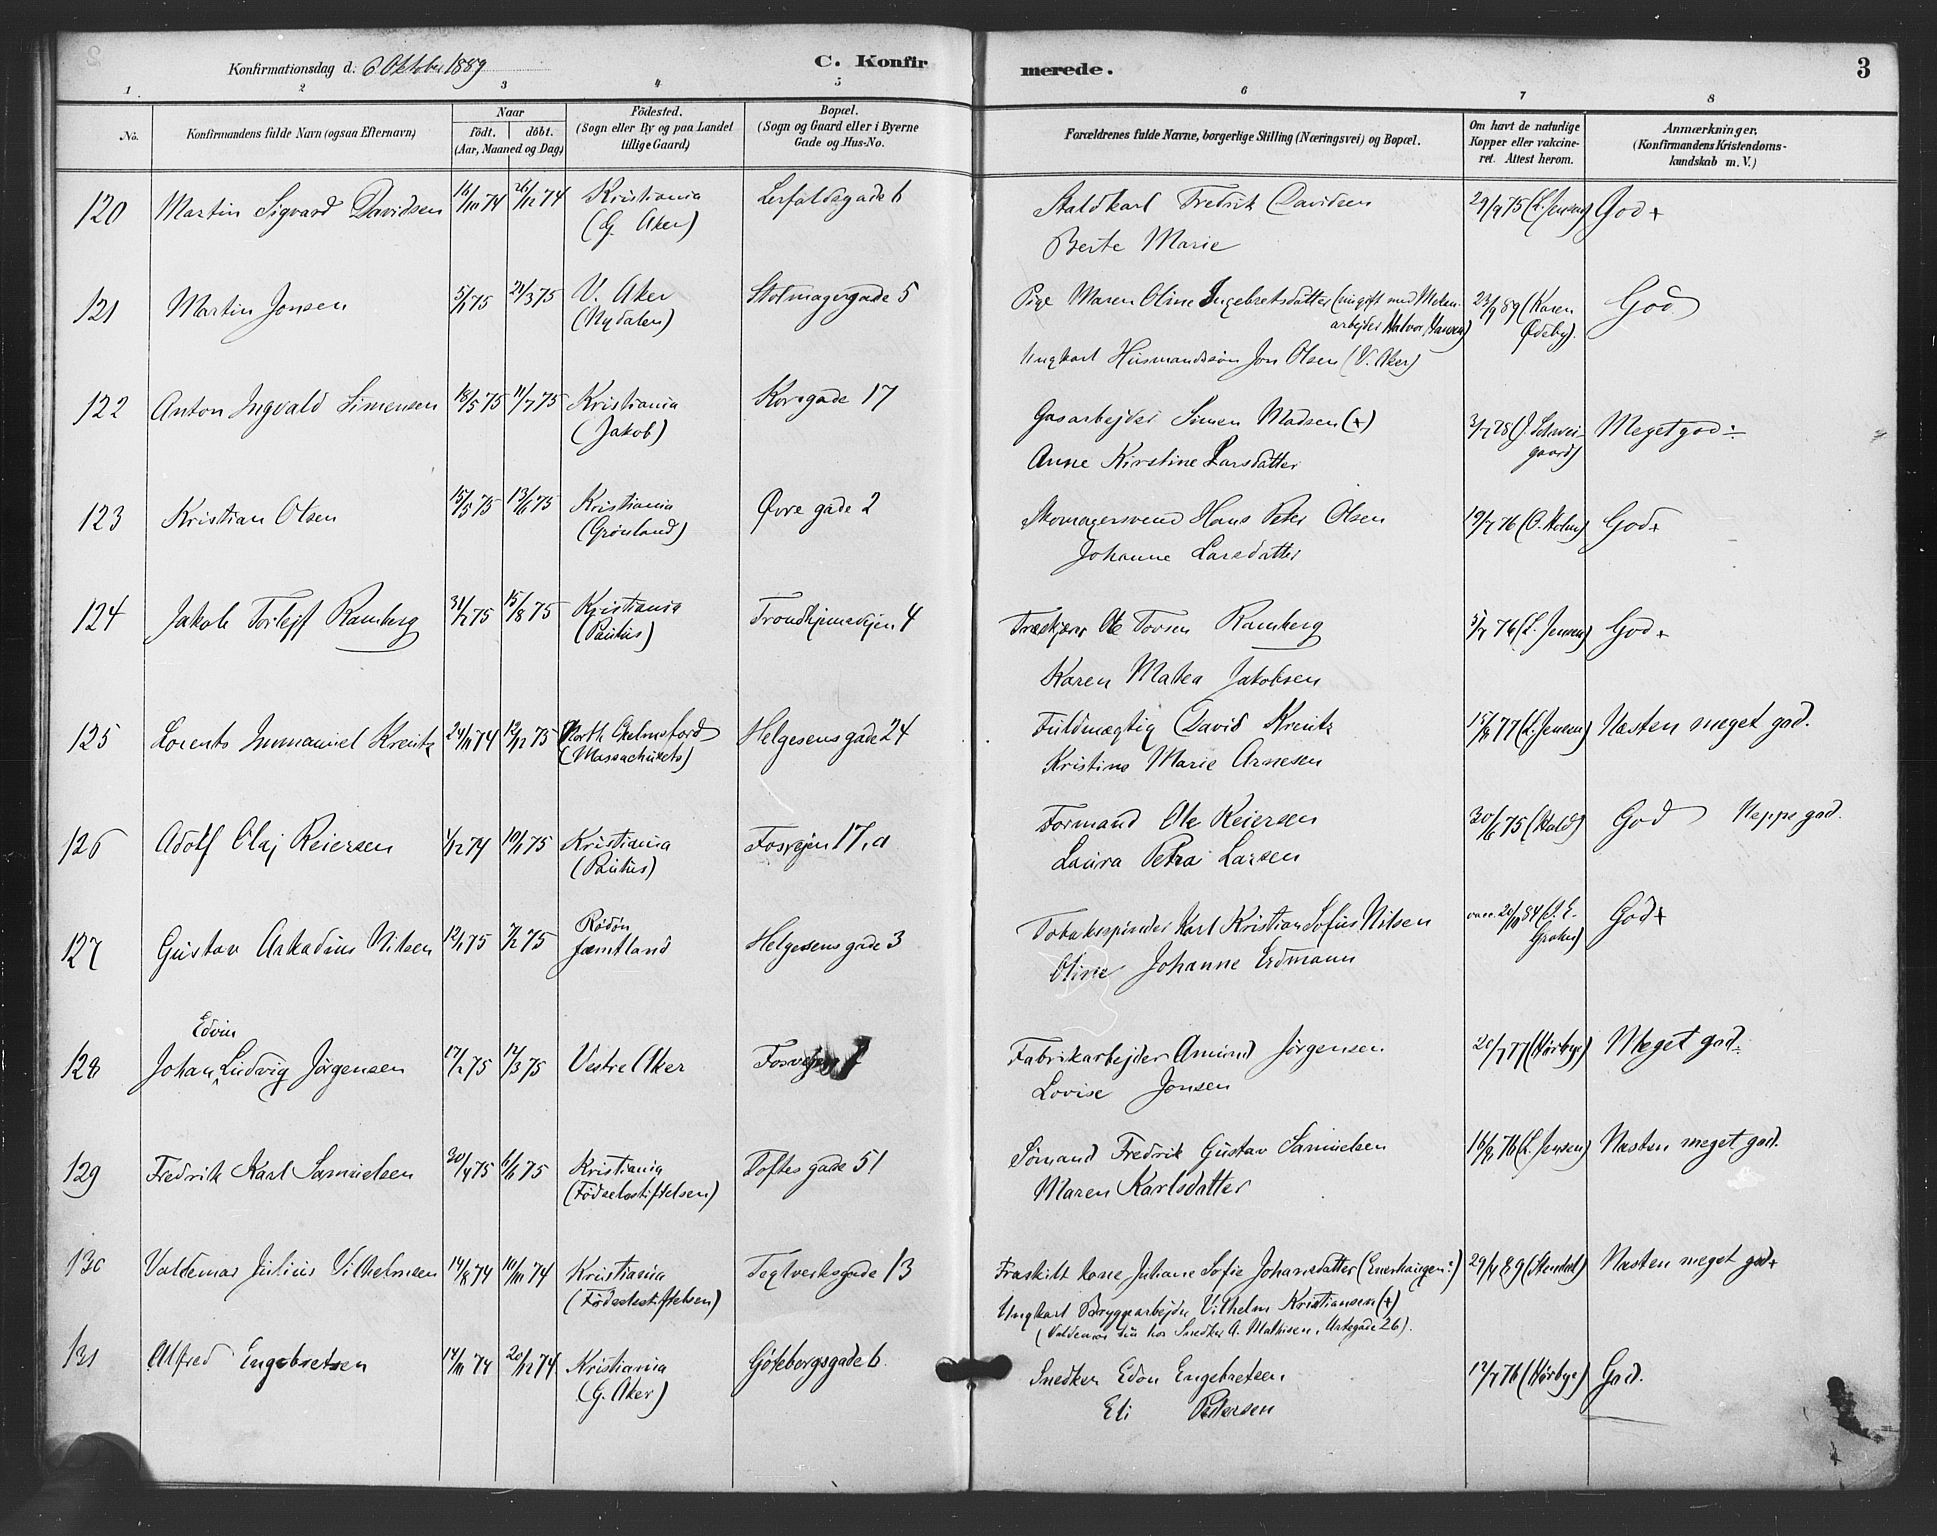 Konfirmationsdag d: 6 Oktober 1889
C. Konfir
merede.
3
1 2 3 4 5 6 7 8
No.
Konfirmandens fulde Navn (ogsaa Efternavn)
Naar
født. | döbt.
(Aar, Maaned og Dag)
Födested.
(Sogn eller By og paa Landet
tillige Gaard)
Bopæl.
(Sogn og Gaard eller i Byerne
Gade og Hus-No.
Forældrenes fulde Navne, borgerlige Stilling (Næringsvei) og Bopæl.
Om havt de naturlige
Kopper eller vakcine-
ret. Attest herom.
Anmærkninger.
(Konfirmandens Kristendoms-
kundskab m. V.)
120 Martin Sigvard Davidsen 16/11 74 26/12 74 Kristiania Lerfaldsgade 6 Staldkarl Fredrik Davidsen 29/9 75 (L. Jensen) God +
(G. Aker) Berte Marie
121 Martin Jonsen 5/1 75 21/3 75 V. Aker Stolmagergade 5 Pige Maren Oline Ingebretsdatter (nu gift med Mekan. 23/9 89 (Karen God
(Nydalen) arbejder Halvor Hansen) Ødeby).
Ungkarl Husmandssøn Jon Olsen (V. Aker)
122 Anton Ingvald Simensen 18/5 75 11/7 75 Kristiania Korsgade 17 Gasarbejder Simen Madsen (+) 3/7 78 (J. Schwei- Meget god ÷
(Jakob) Anne Kirstine Larsdatter gaard)
123 Kristian Olsen 15/5 75 13/6 75 Kristiania Øvre gade 2 Skomagersvend Hans Peter Olsen 19/7 76 (O. Holm) God +
(Grönland) Johanne Larsdatter
124 Jakob Torlejf Ramberg 31/1 75 15/8 75 Kristiania Trondhjemsvejen 4 Træskjærer Ole Tovsen Ramberg 5/7 76 (L. Jensen) God +
(Paulus) Karen Matea Jakobsen
125 Lorents Immanuel Krentz 24/11 74 12/12 75 North Chelmsford Helgesens gade 24 Fuldmægtig David Krentz 15/8 77 (L. Jensen) Næsten meget god.
(Massachusets) Kristine Marie Arnesen
126 Adolf Olaf Reiersen 1/12 74 10/1 75 Kristiania Fosvejen 17, a Formand Ole Reiersen 30/6 75 (Hald) God Neppe god.
(Paulus) Laura Petra Larsen
127 Gustav Arkadius Nilsen 12/1 75 7/2 75 Rödön Helgesens gade 3 Tobaksspinder Karl Kristian Sofus Nilsen vacc. 20/10 84 (J. E. God +
Jæmtland Oline Johanne Erdmann
Edvin
128 Johan Ludvig Jørgensen 17/2 75 14/3 75 Vestre Aker Fosvejen 7 Fabrikarbejder Amund Jørgensen 20/7 77 (Hørbye) Meget god ÷
Lovise Jonsen
129 Fredrik Karl Samuelsen 30/4 75 6/6 75 Kristiania Toftes gade 51 Sømand Fredrik Gustav Samuelsen 16/8 76 (L. Jensen) Næsten meget god.
(Födselsstiftelsen) Maren Karlsdatter
130 Valdemar Julius Vilhelmsen 14/8 74 10/11 74 Kristiania Teglverksgade 13 Fraskilt kone Juliane Sofie Johansdatter (Enerhaugen:) 29/4 89 (Stendal) Næsten meget god +
(Födselsstiftelsen) Ungkarl Bryggearbejder Vilhelm Kristiansen (+)
(Valdemar hos Snedker A. Mathisen, Urtegade 26).
131 Alfred Engebretsen 14/11 74 20/12 74 Kristiania Göteborgsgade 6. Snedker Edon Engebretsen 12/7 76 (Hørbye) God.
(G. Aker) Eli Pedersen